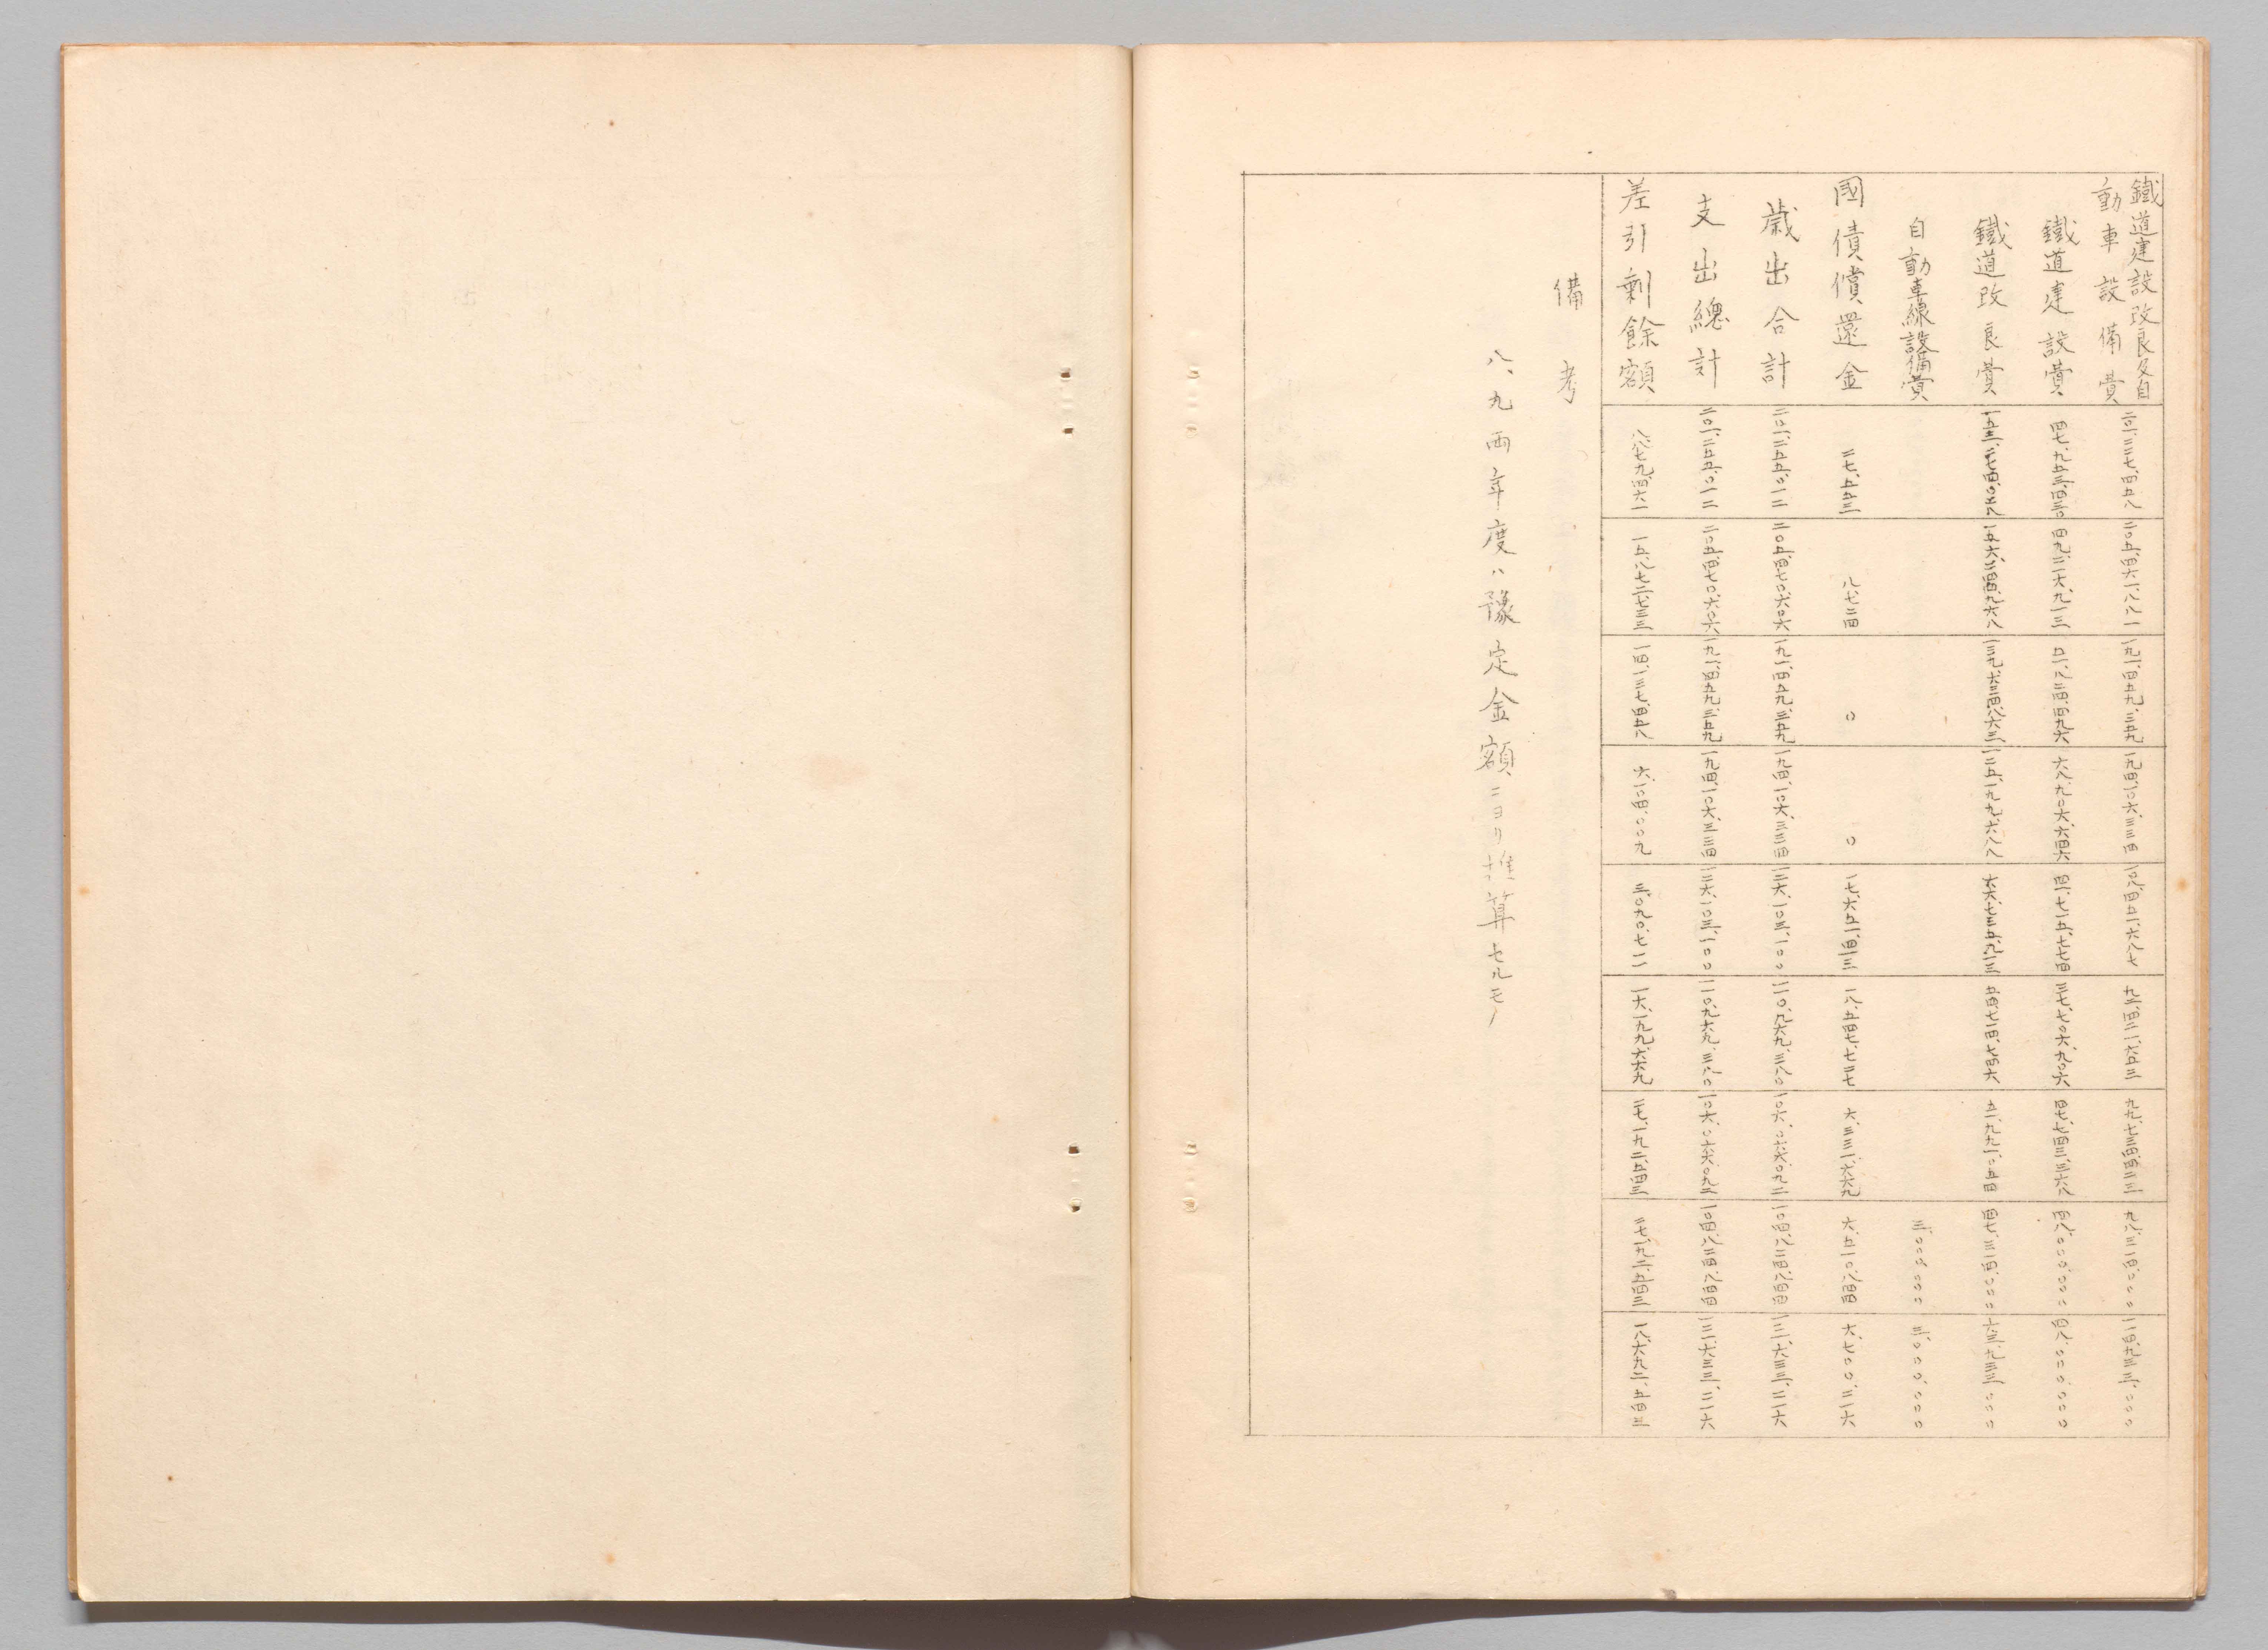 鐵道建設改良及自
動車設備費 二〇一、二二七、四五八 二〇五、四六一、八八一 一九一、四五九、三五九 一九四、一〇六、三三四 一〇八、四五一、六八七 九二、四二一、六五三 九九、七三四、四二三 九八、三一四、〇〇〇 一一四、九三三、〇〇〇
鐵道建設費 四七、九五三、四三〇 四九、二一六、九一三 五一、八二四、四九六 六八、九〇六、六四六 四一、七一五、七七四 三七、七〇六、九〇六 四七、七四三、三六八 四八、〇〇〇、〇〇〇 四八、〇〇〇、〇〇〇
鐵道改良費 一五三、二七四、〇二八 一五六、二四四、九六八 一三九、六三四、八六三 一二五、一九九、六八八 六六、七三五、九一三 五四、七一四、七四六 五一、九九一、〇五四 四七、三一四、〇〇〇 六三、九三三、〇〇〇
自動車線設備費 三、〇〇〇、〇〇〇 三、〇〇〇、〇〇〇
國債償還金 二七、五五三 八、七二四 〇 〇 一七、六五一、四一三 一八、五四七、七二七 六、三三一、六六九 六、五一〇、八四四 六、七〇〇、二二六
歳出合計 二〇一、二五五、〇一二 二〇五、四七〇、六〇六 一九一、四五九、三五九 一九四、一〇六、三三四 一二六、一〇三、一〇〇 一一〇、九六九、三八〇 一〇六、〇六六、〇九二 一〇四、八二四、八四四 一二一、六三三、二二六
支出總計 二〇一、二五五、〇一二 二〇五、四七〇、六〇六 一九一、四五九、三五九 一九四、一〇六、三三四 一二六、一〇三、一〇〇 一一〇、九六九、三八〇 一〇六、〇六六、〇九二 一〇四、八二四、八四四 一二一、六三三、二二六
差引剩餘額 八、八七九、四六一 一五、八七二、七三三 一四、一三七、四五八 六、一〇四、〇〇九 三、〇九〇、七一二 一六、一九九、六六九 二七、一九二、五四三 二七、一九二、五四三 一八、六九二、五四三
備考
八、九兩年度ハ豫定金額ニヨリ推算セルモノ